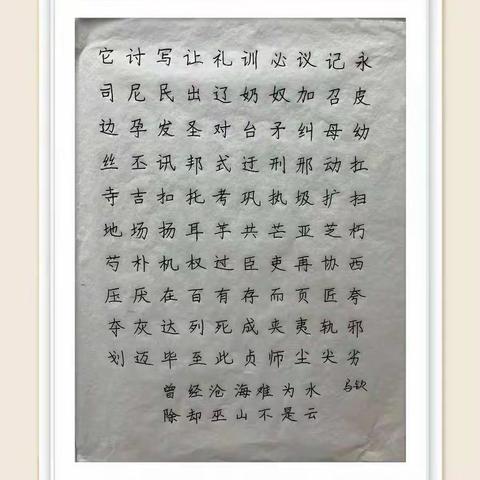 它计写让礼训必议记永
司尼民出辽奶奴加召皮
边孕发圣对台矛纠母幼
丝丕讯邦式迂刑邢动扛
寺吉扣托考巩执圾扩扫
地场扬耳芋共芒亚芝朽
芍朴机权过臣吏再协西
压厌在百有存而页匠夸
夺灰达列死成夹夷轨邪
划迈毕至此贞师尘尖劣
曾经沧海难为水 马钦
除却巫山不是云